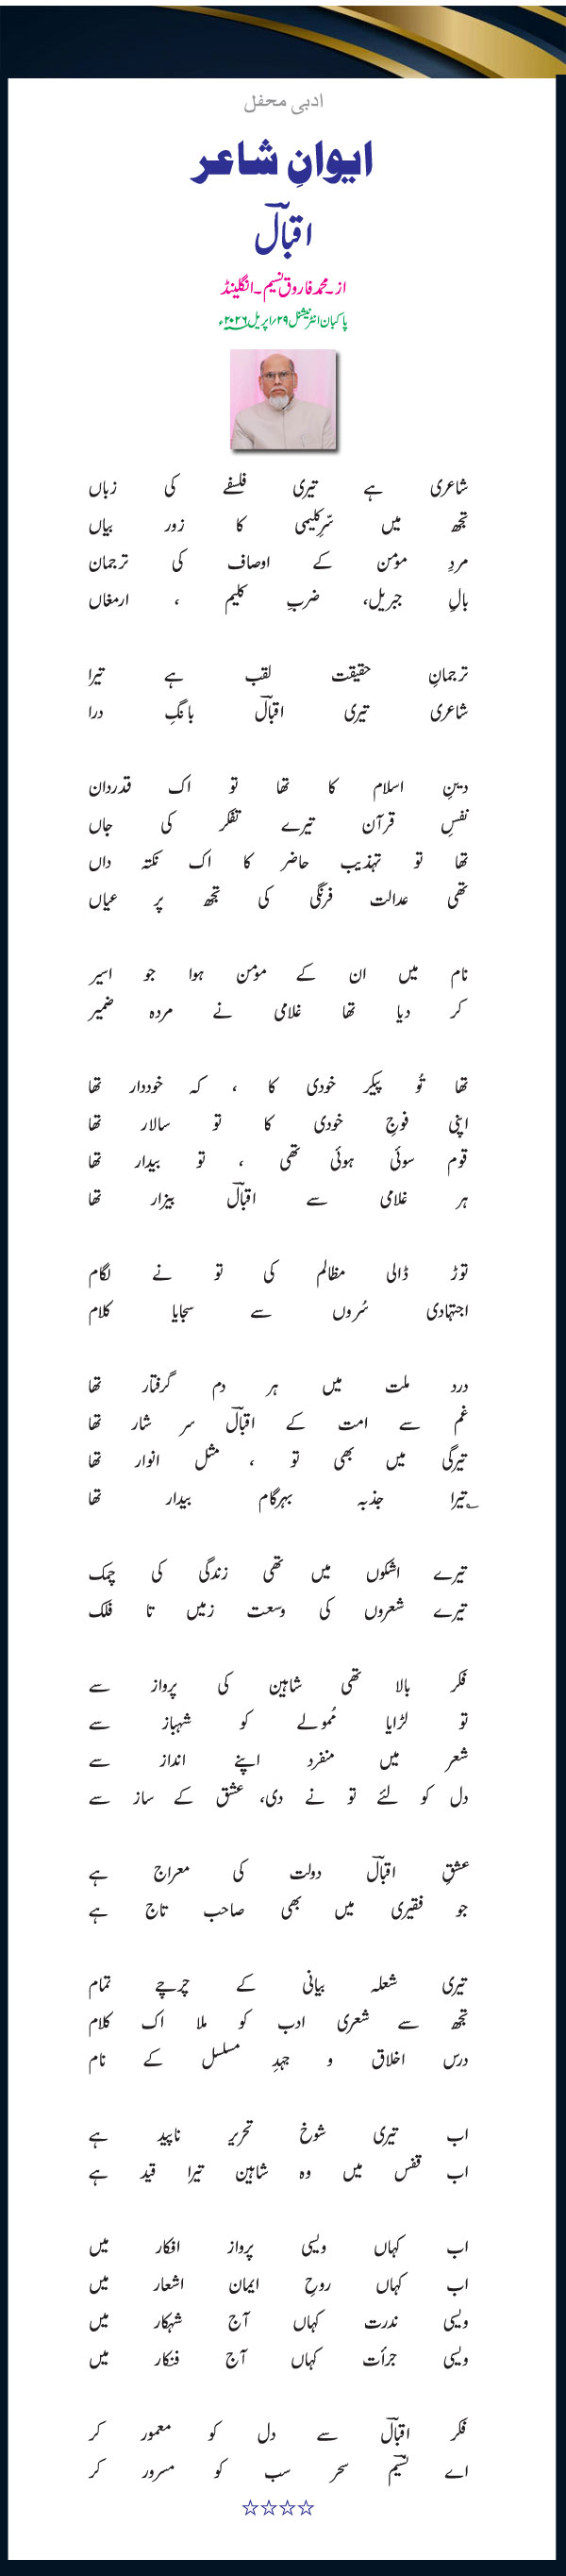 ادبی محفل
ایوانِ شاعر
اقبالؔ
از۔محمد فاروق نسیم۔انگلینڈ
پاکبان انٹرنیشنل ۲۹؍اپریل ۲۰۲۶ء
شاعری ہے تیری فلسفے کی زباں
تجھ میں سّرِکلیمی کا زور بیاں
مردِ مومن کے اوصاف کی ترجمان
بالِ جبریل، ضربِ کلیم ، ارمغاں
ترجمانِ حقیقت لقب ہے تیرا
شاعری تیری اقبالؔ بانگِ درا
دینِ اسلام کا تھا تو اک قدردان
نفسِ قرآن تیرے تفکر کی جاں
تھا تو تہذیب حاضر کا اک نکتہ داں
تھی عدالت فرنگی کی تجھ پر عیاں
نام میں ان کے مومن ہوا جو اسیر
کر دیا تھا غلامی نے مردہ ضمیر
تھا تُو پیکر خودی کا ، کہ خوددار تھا
اپنی فوجِ خودی کا تو سالار تھا
قوم سوئی ہوئی تھی ، تو بیدار تھا
ہر غلامی سے اقبالؔ بیزار تھا
توڑ ڈالی مظالم کی تو نے لگام
اجتہادی سُروں سے سجایا کلام
درد ملت میں ہر دم گرفتار تھا
غم سے امت کے اقبالؔ سر شار تھا
تیرگی میں بھی تو ، مثل انوار تھا
؎تیرا جذبہ بہرگام بیدار تھا
تیرے اشکوں میں تھی زندگی کی چمک
تیرے شعروں کی وسعت زمیں تا فلک
فکر بالا تھی شاہین کی پرواز سے
تو لڑایا مُمولے کو شہباز سے
شعر میں منفرد اپنے انداز سے
دل کو لئے تو نے دی، عشق کے ساز سے
عشقِ اقبالؔ دولت کی معراج ہے
جو فقیری میں بھی صاحب تاج ہے
تیری شعلہ بیانی کے چرچے تمام
تجھ سے شعری ادب کو ملا اک کلام
درس اخلاق و جہدِ مسلسل کے نام
اب تیری شوخ تحریر ناپید ہے
اب قفس میں وہ شاہین تیرا قید ہے
اب کہاں ویسی پرواز افکار میں
اب کہاں روحِ ایمان اشعار میں
ویسی ندرت کہاں آج شہکار میں
ویسی جرأت کہاں آج فنکار میں
فکر اقبالؔ سے دل کو معمور کر
اے نسیمؔ سحر سب کو مسرور کر
☆☆☆☆